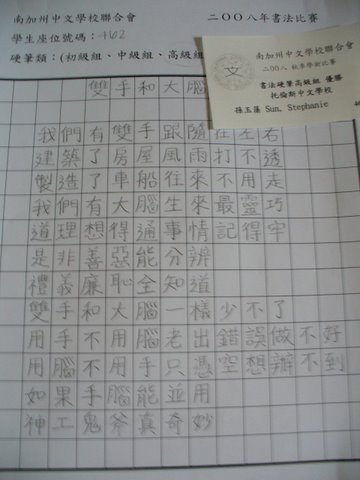 南加州中文學校聯合會
二〇〇八年書法比賽
學生座位號碼:4602
硬筆類:(初級組、中級組、高級組
南加州中文學校聯合會
二〇〇八 秋季學術比賽
文
書法硬筆高級組 優勝
托倫斯中文學校
孫玉藻 Sun, Stephanie
雙手和大腦
我們有雙手跟隨在左右
建築了房屋風雨打不透
製造了車船往來不用走
我們有大腦生來最靈巧
道理想得通事情記得牢
是非善惡能分辨
禮義廉恥全知道
雙手和大腦一樣少不了
用手不用腦老出錯誤做不好
用腦不用手只憑空想辦不到
如果手腦能並用
神工鬼斧真奇妙